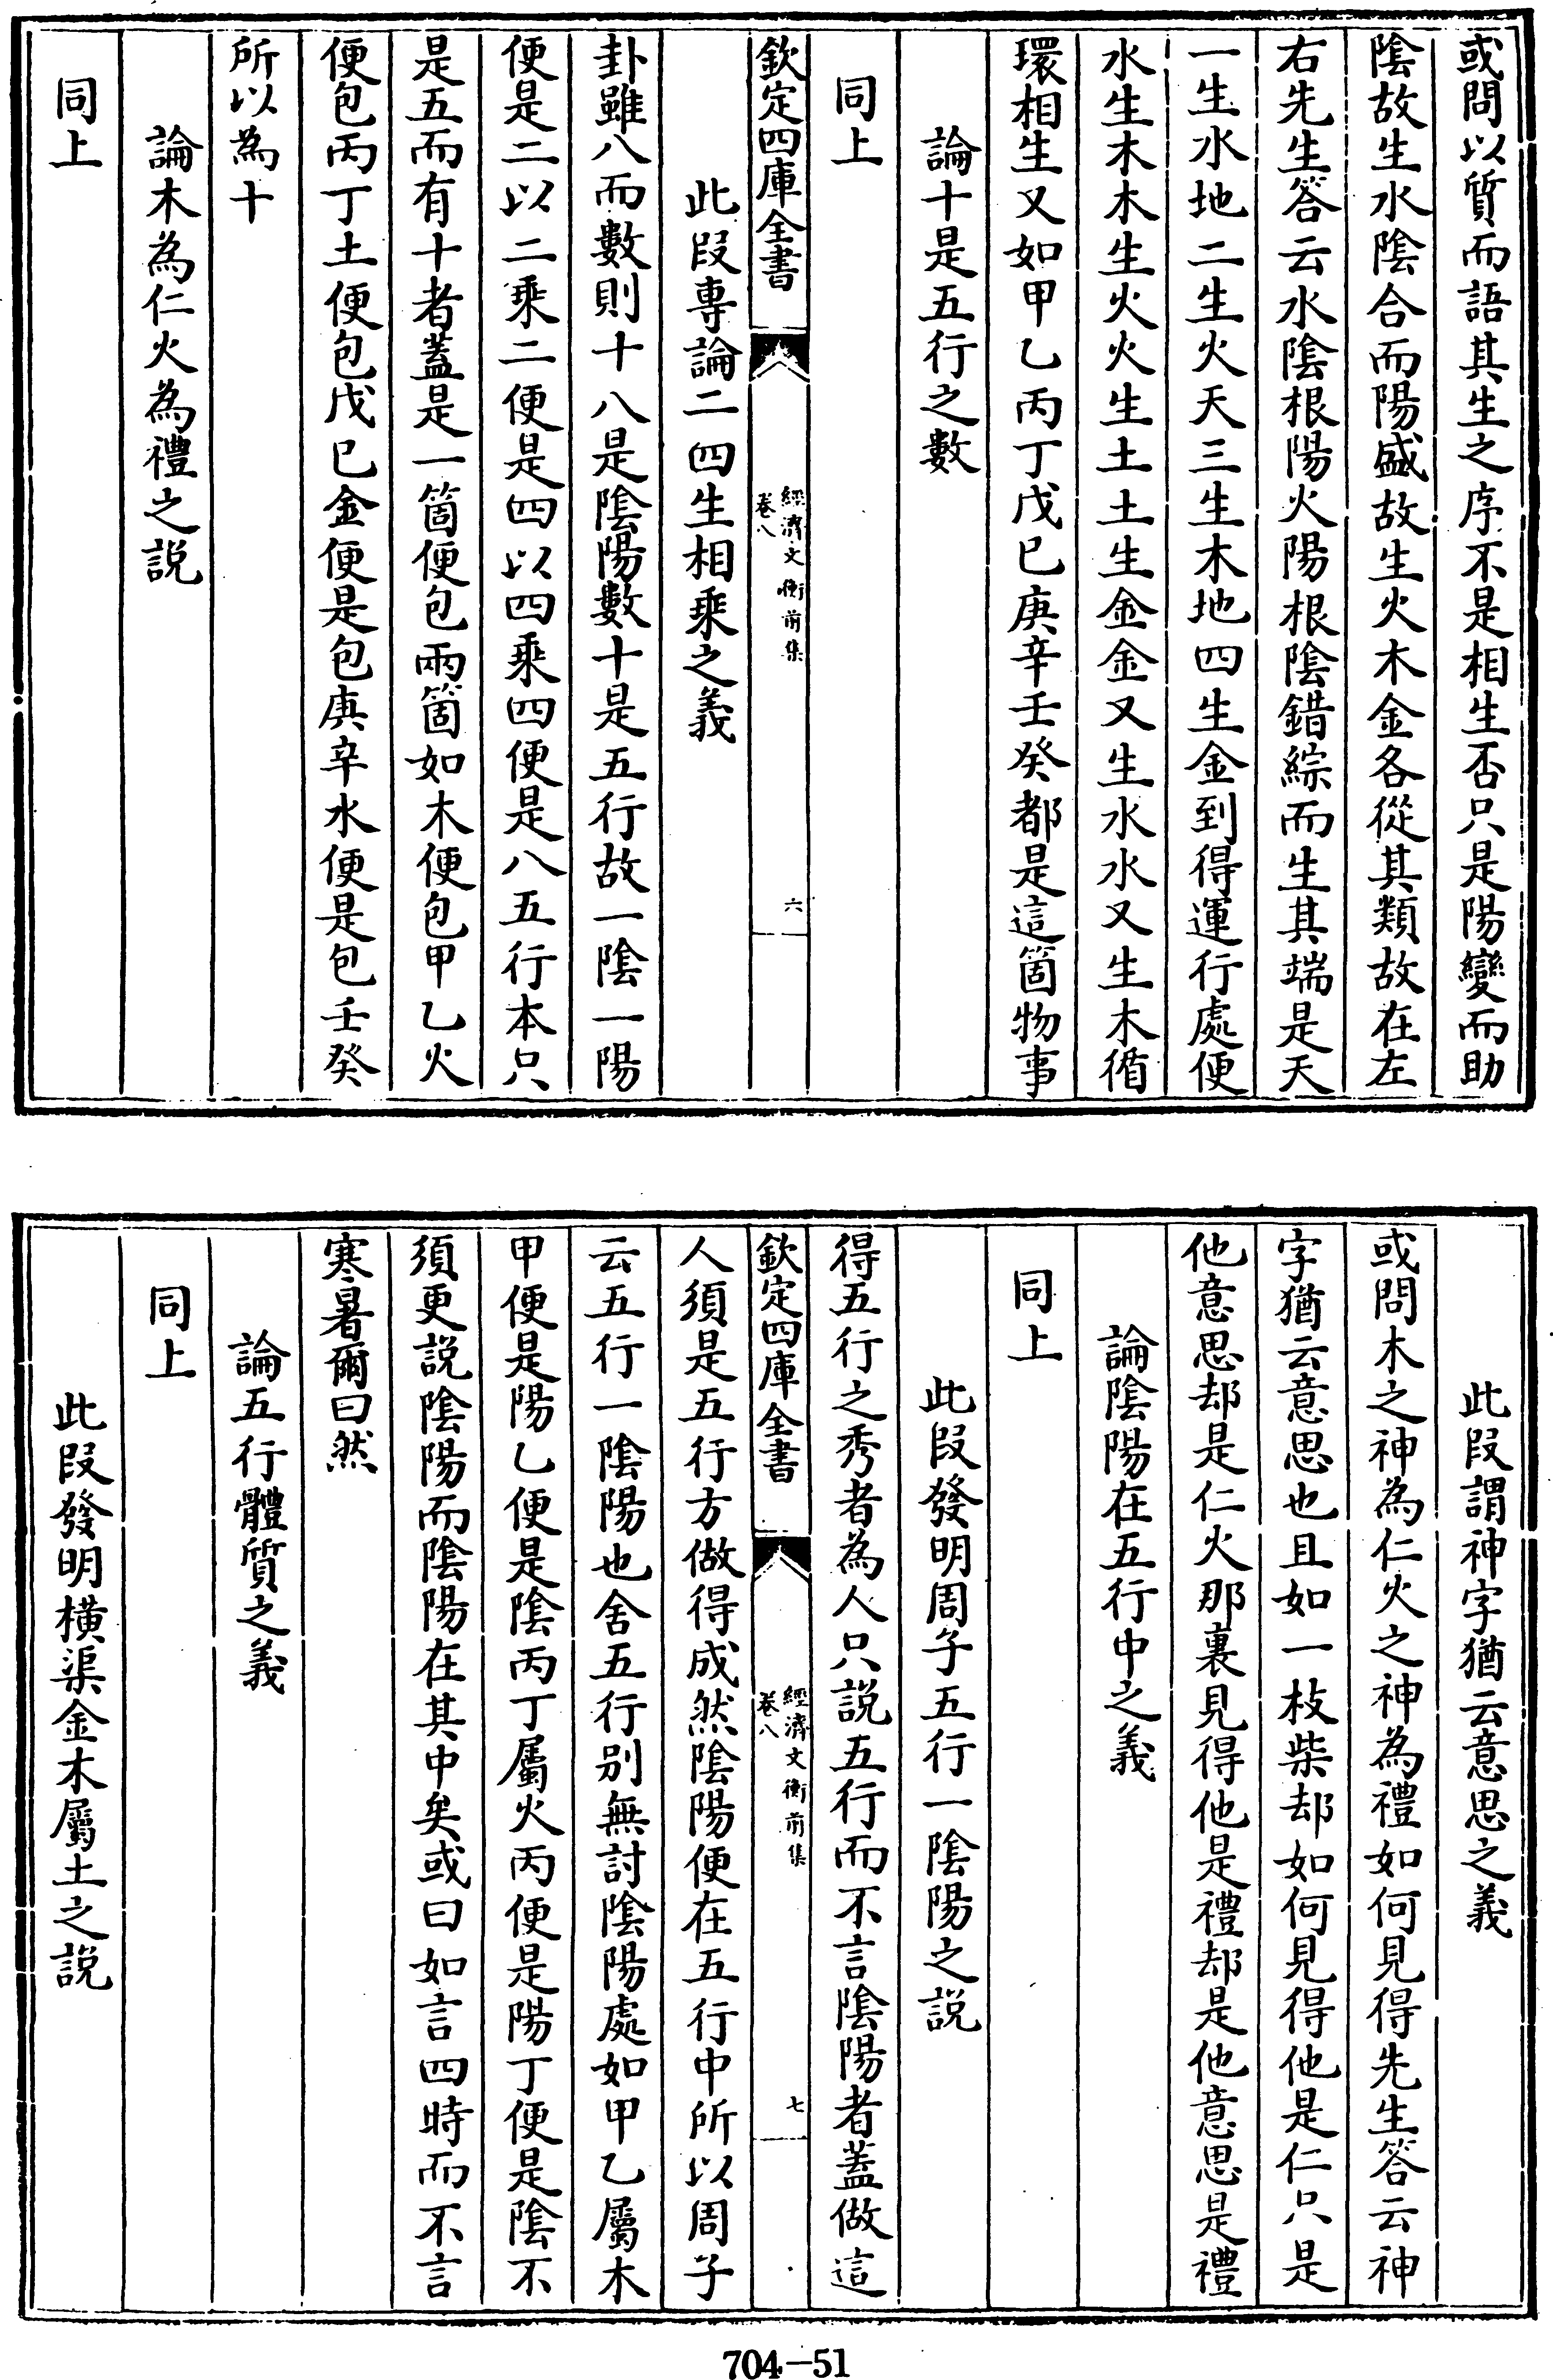 或問以質而語其生之序不是相生否只是陽變而助
陰故生水陰合而陽盛故生火木金各從其類故在左
右先生答云水陰根陽火陽根陰錯綜而生其端是天
一生水地二生火天三生木地四生金到得運行處便
水生木木生火火生土土生金金又生水水又生木循
環相生又如甲乙丙丁戊巳庚辛壬癸都是這箇物事
論十是五行之數
同上
欽定四庫全書
經濟文衡前集
卷八
六
此段專論二四生相乘之義
卦雖八而數則十八是陰陽數十是五行故一陰一陽
便是二以二乘二便是四以四乘四便是八五行本只
是五而有十者蓋是一箇便包兩箇如木便包甲乙火
便包丙丁土便包戊巳金便是包庚辛水便是包壬癸
所以為十
論木為仁火為禮之說
同上
此段謂神字猶云意思之義
或問木之神為仁火之神為禮如何見得先生答云神
字猶云意思也且如一枝柴却如何見得他是仁只是
他意思却是仁火那裏見得他是禮却是他意思是禮
論陰陽在五行中之義
同上
此段發明周子五行一陰陽之說
得五行之秀者為人只說五行而不言陰陽者蓋做這
欽定四庫全書
經濟文衡前集
卷八
七
人須是五行方做得成然陰陽便在五行中所以周子
云五行一陰陽也舍五行别無討陰陽處如甲乙屬木
甲便是陽乙便是陰丙丁屬火丙便是陽丁便是陰不
須更說陰陽而陰陽在其中矣或曰如言四時而不言
寒暑爾曰然
論五行體質之義
同上
此段發明橫渠金木屬土之說
704—51